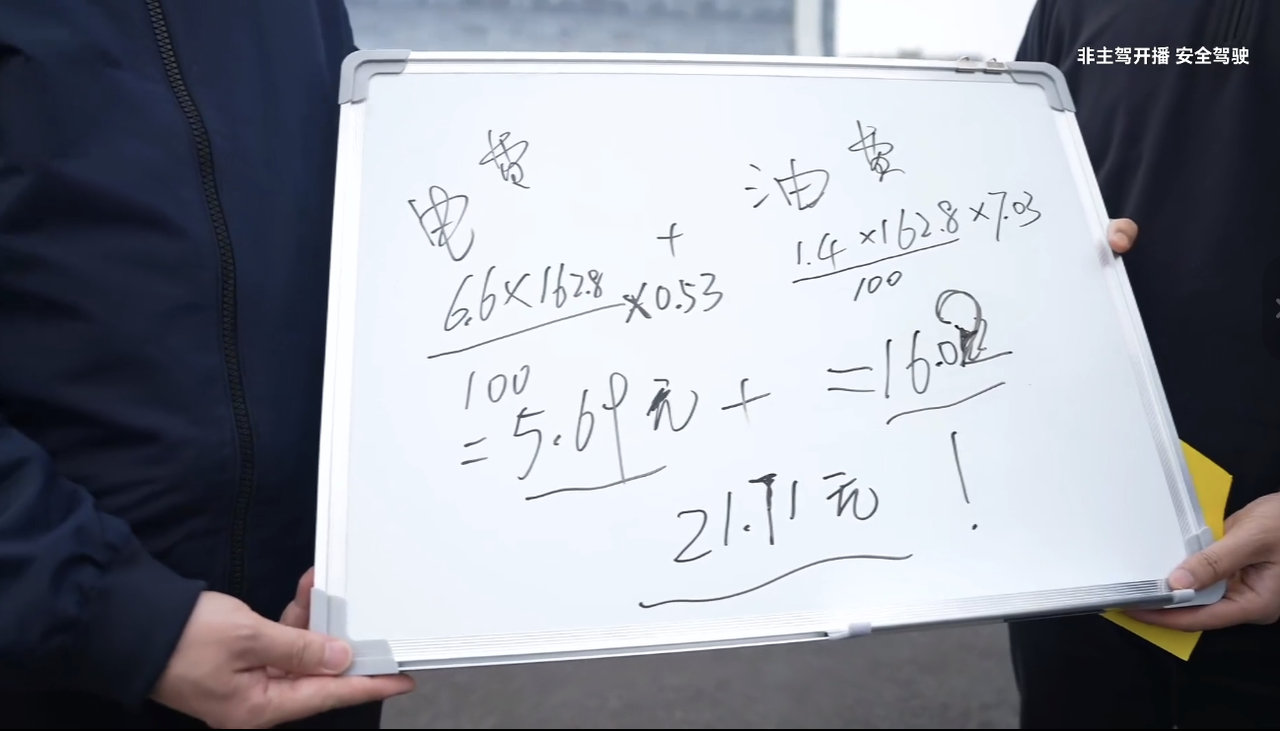 非主驾开播 安全驾驶
电费 + 油费
6.6×162.8
100
×0.53
1.4×162.8×7.03
100
=5.69元+
=16.02
21.71元!